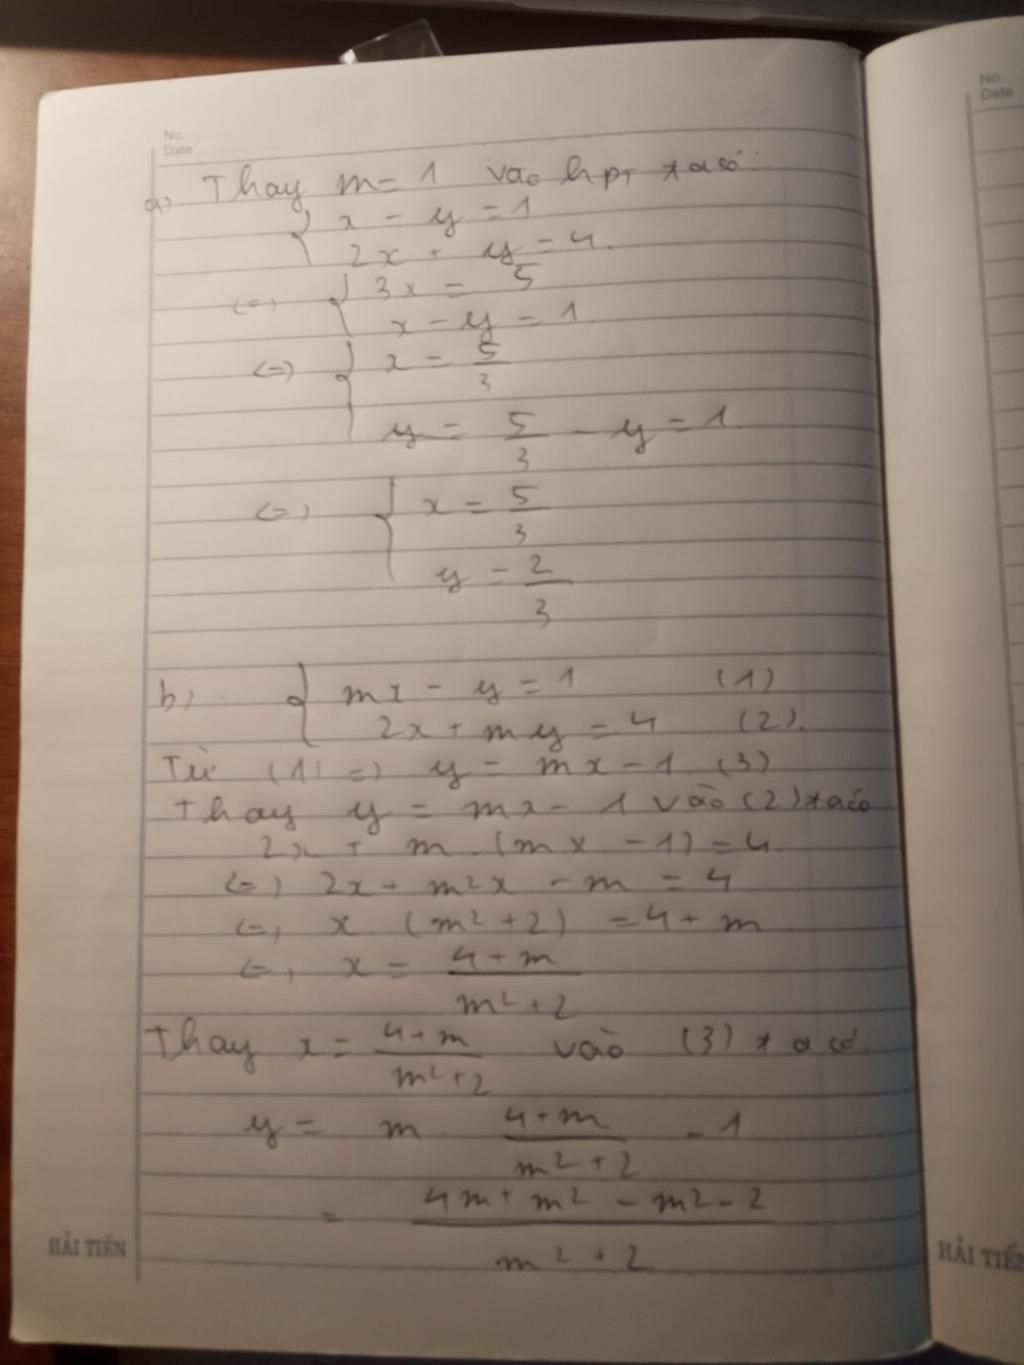 No.
Date
a) Thay m = 1 vào hpt ta có:
{ x - y = 1
2x + y = 4.
<=> { 3x = 5
x - y = 1
<=> { x = 5/3
y = 5/3 - y = 1
<=> { x = 5/3
y = 2/3
b) { mx - y = 1 (1)
2x + my = 4 (2).
Từ (1) => y = mx - 1 (3)
Thay y = mx - 1 vào (2) ta có
2x + m.(mx - 1) = 4
<=> 2x + m²x - m = 4
<=> x (m² + 2) = 4 + m
<=> x = (4 + m)/(m² + 2)
Thay x = (4 + m)/(m² + 2) vào (3) ta có:
y = m . (4 + m)/(m² + 2) - 1
= (4m + m² - m² - 2)/(m² + 2)
HẢI TIẾN
No.
Date
HẢI TIẾN